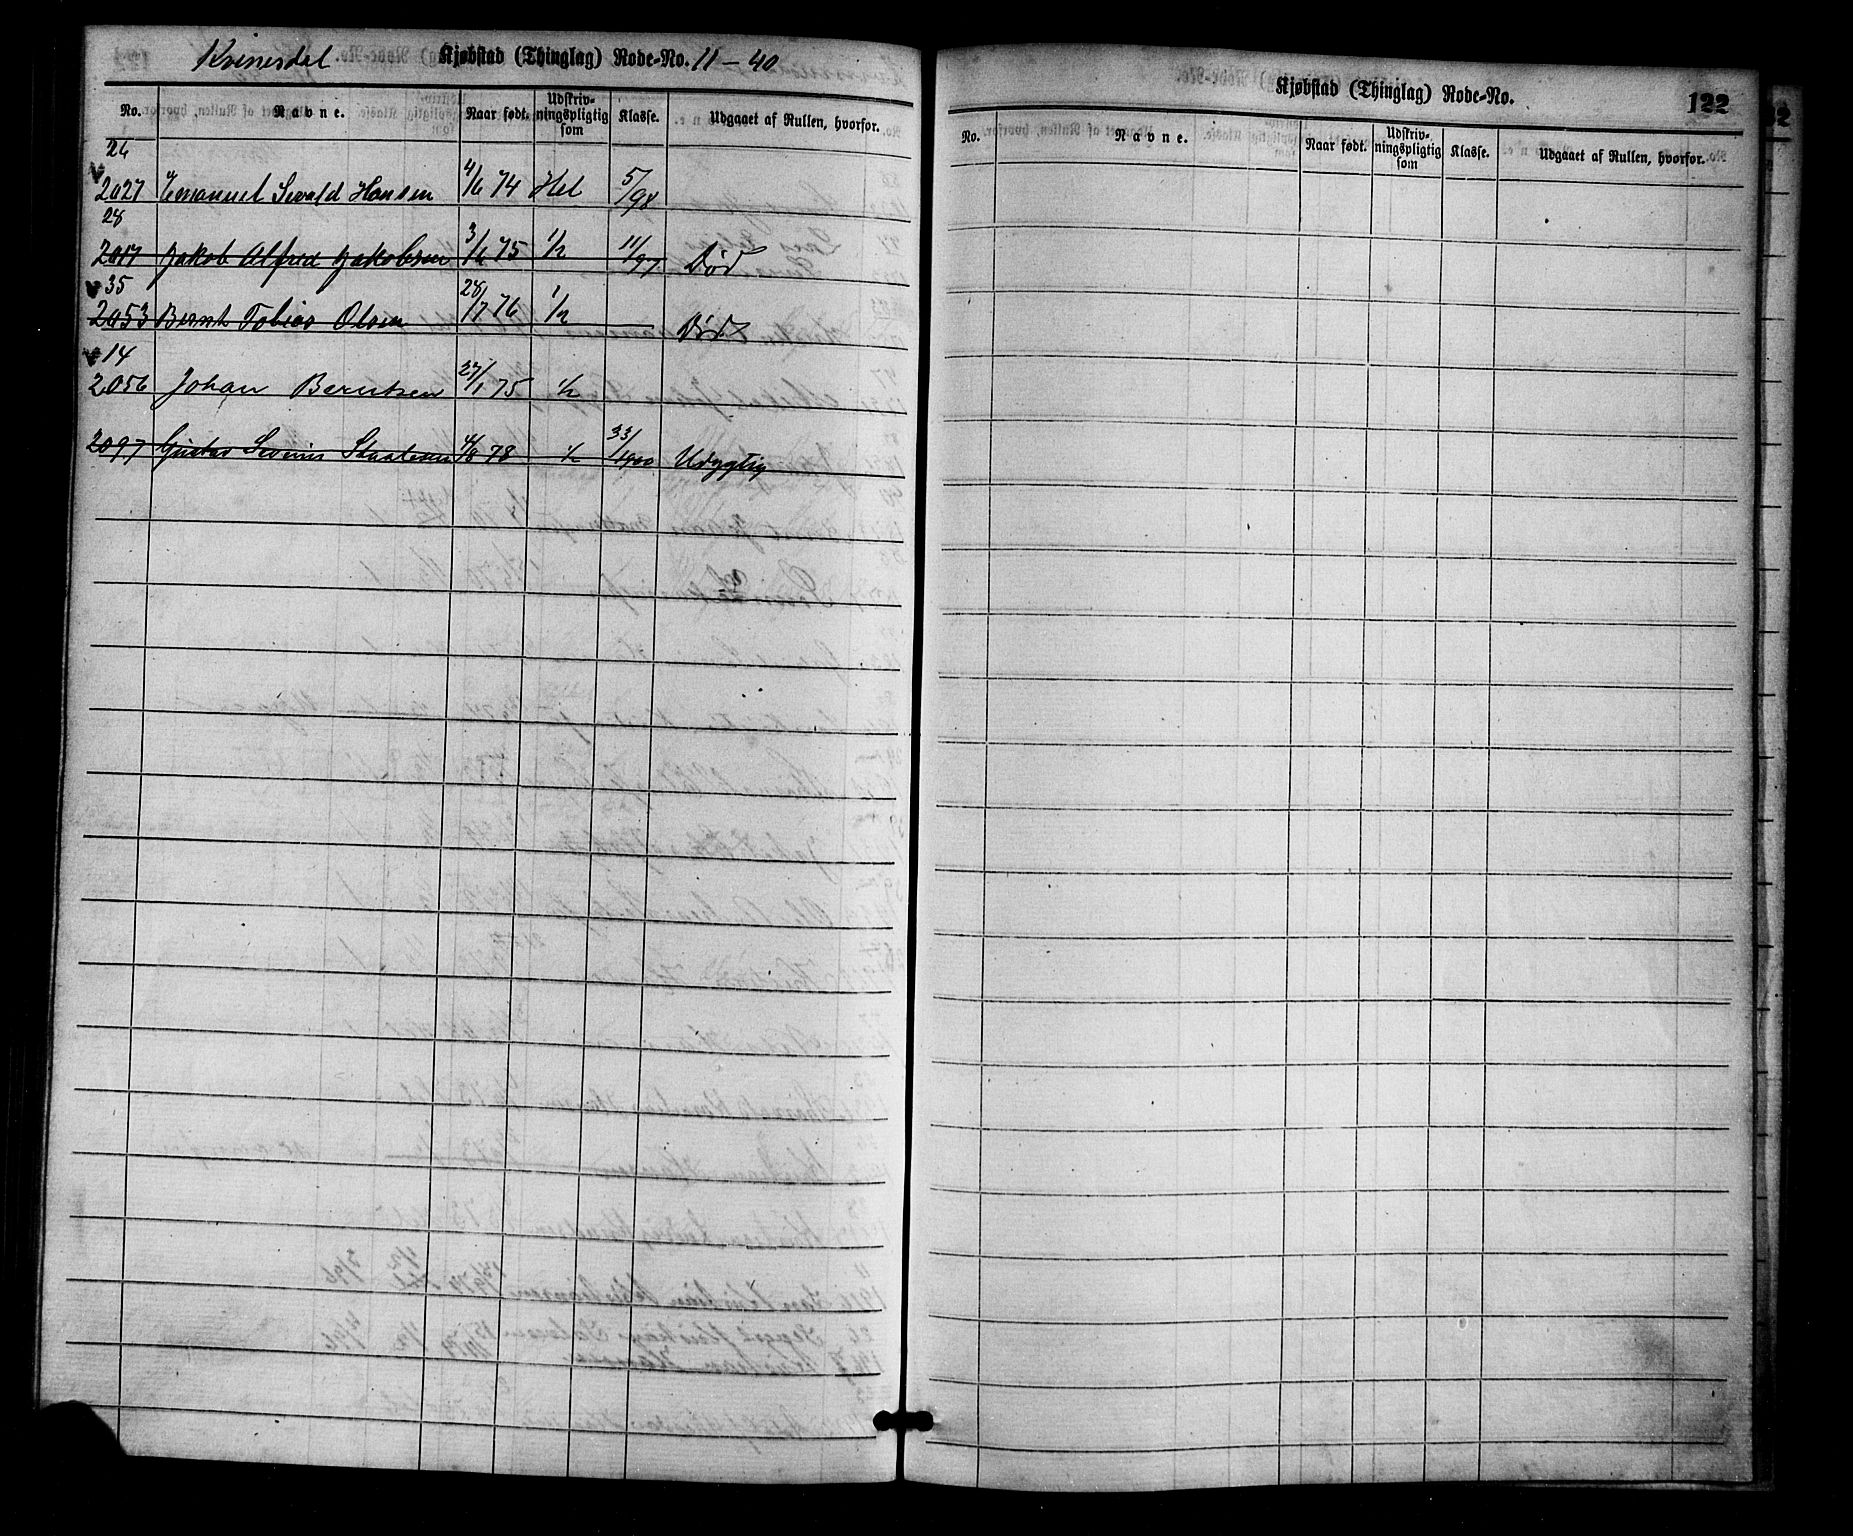 Kvinesdal Kjøbstad (Thinglag) Rode-No. 11 – 40
No. Navne. Naar født. Udskrivningspligtig som Klasse. Udgaaet af Rullen, hvorfor.
26
2027 Emanuel Sevald Hansen 4/6 74 Hel 5/98
28
2047 Jakob Alfred Jakobsen 3/6 75 1/2 11/97 Død
35
2053 Bernt Tobias Olsen 28/7 76 1/2 Død
14
2056 Johan Berntsen 27/1 75 1/2
2097 Gustav Severin 4/8 78 1/2 33/1900 Udygtig
Kjøbstad (Thinglag) Rode-No.
122
No. Navne. Naar født. Udskrivningspligtig som Klasse. Udgaaet af Rullen, hvorfor.